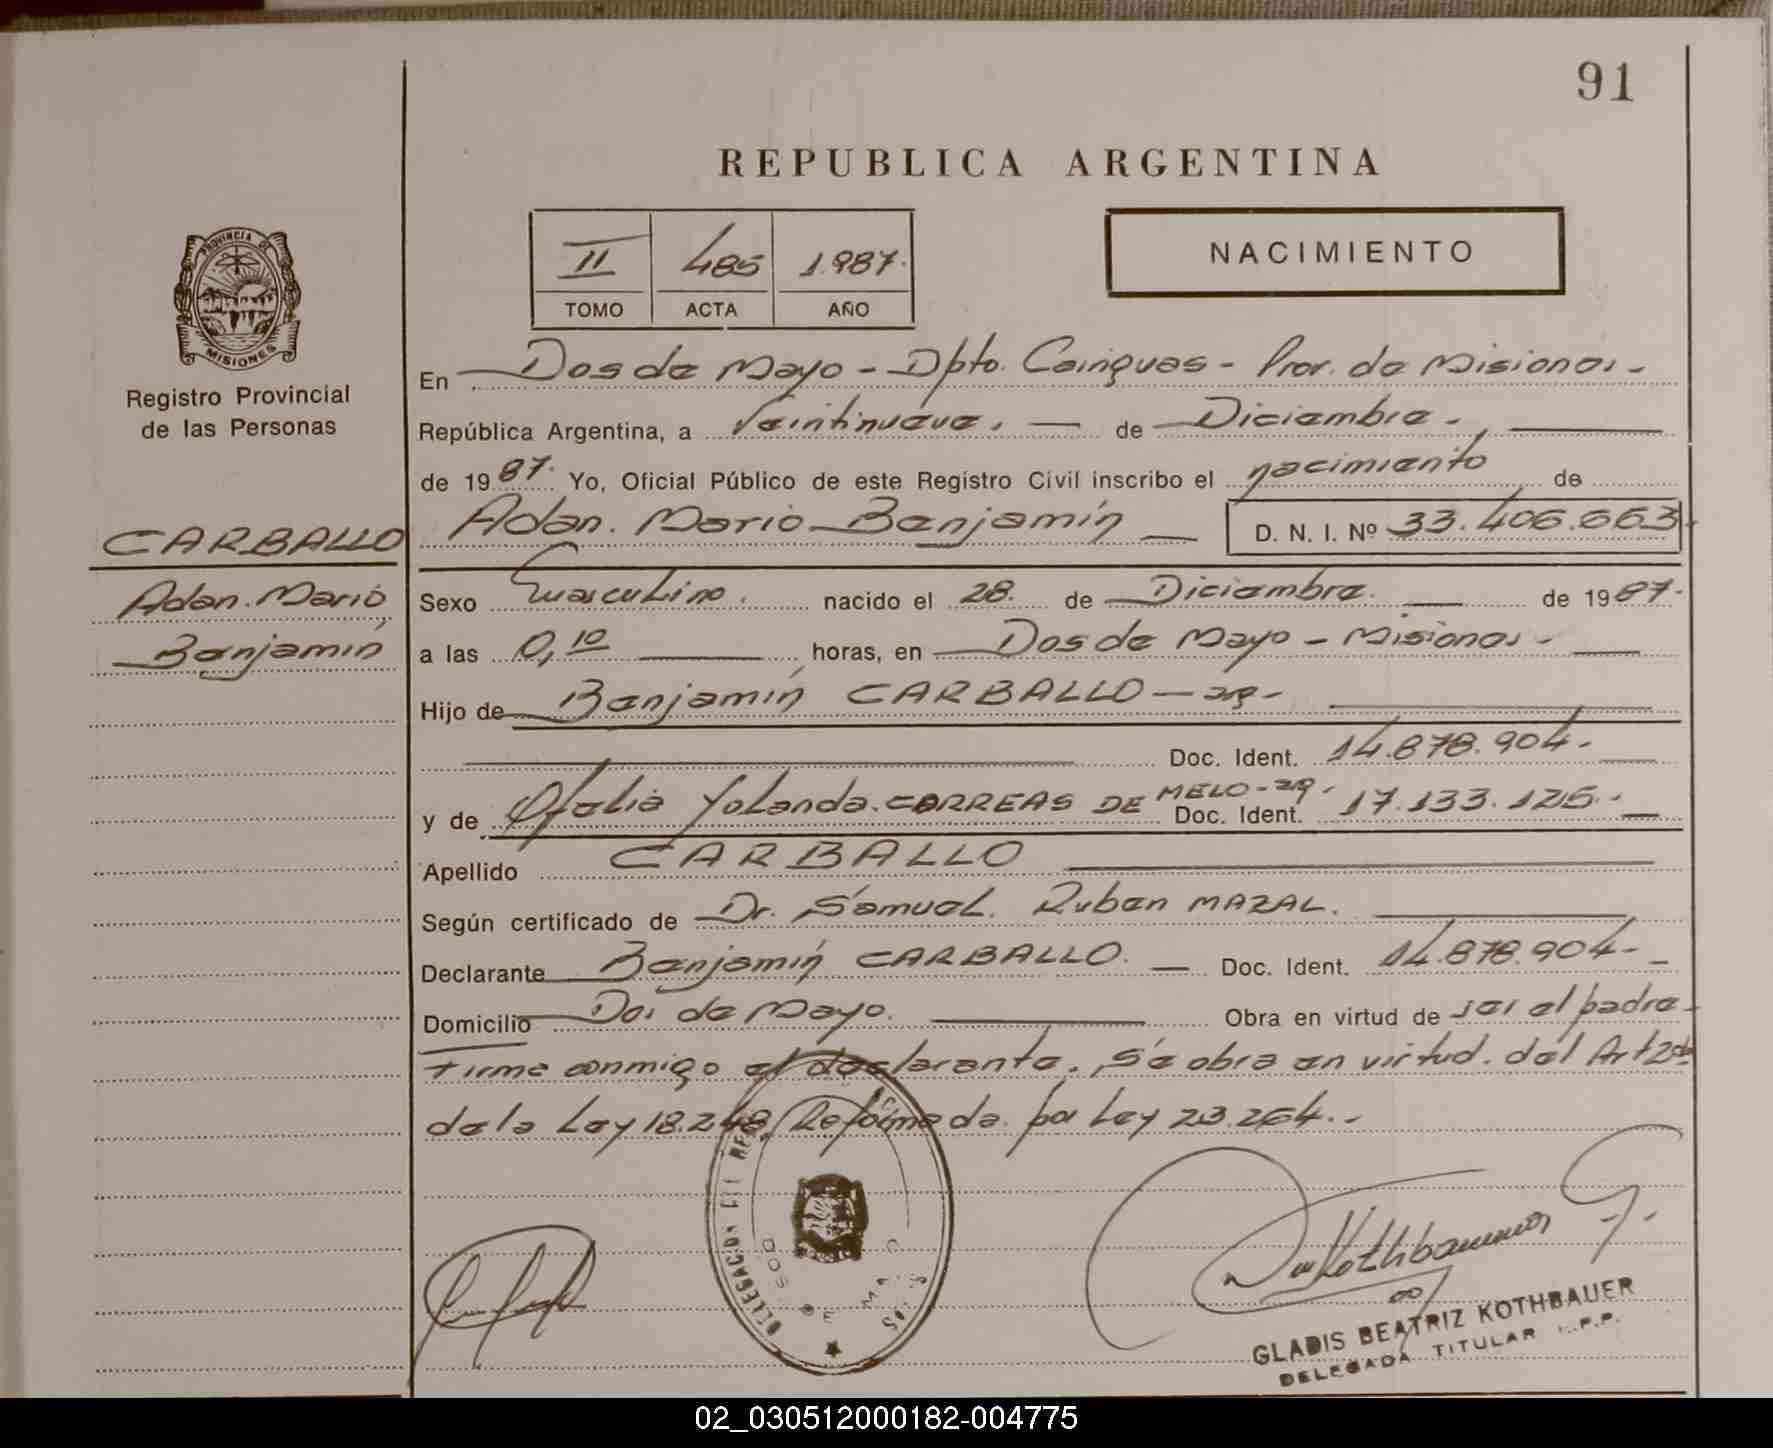 91
REPUBLICA ARGENTINA
II 485 1.987.
TOMO ACTA AÑO
NACIMIENTO
PROVINCIA DE
MISIONES
Registro Provincial
de las Personas
CARBALLO
Adan. Mario
Benjamín
En Dos de Mayo - Dpto. Cainguas - Prov. de Misiones -
República Argentina, a Veintinueve. de Diciembre -
de 1987. Yo, Oficial Público de este Registro Civil inscribo el nacimiento de
Adan. Mario Benjamín D. N. I. Nº 33.406.663
Sexo Masculino. nacido el 28. de Diciembre. de 1987.
a las 0,10 horas, en Dos de Mayo - Misiones -
Hijo de Benjamín CARBALLO - arg -
Doc. Ident. 14.878.904-
y de Ofelia Yolanda. CORREAS DE MELO - arg - Doc. Ident. 17.133.125.-
Apellido CARBALLO
Según certificado de Dr. Samuel. Ruben MAZAL.
Declarante Benjamín CARBALLO. Doc. Ident. 14.878.904-
Domicilio Dos de Mayo. Obra en virtud de ser el padre -
Firme conmigo el declarante. Se obra en virtud. del Art 2do
de la Ley 18.248, Reformada. por Ley 23.264.-
DELEGACION DEL
DOS DE MAYO
Kothbauer
GLADIS BEATRIZ KOTHBAUER
DELEGADA TITULAR R.P.P.
02_030512000182-004775